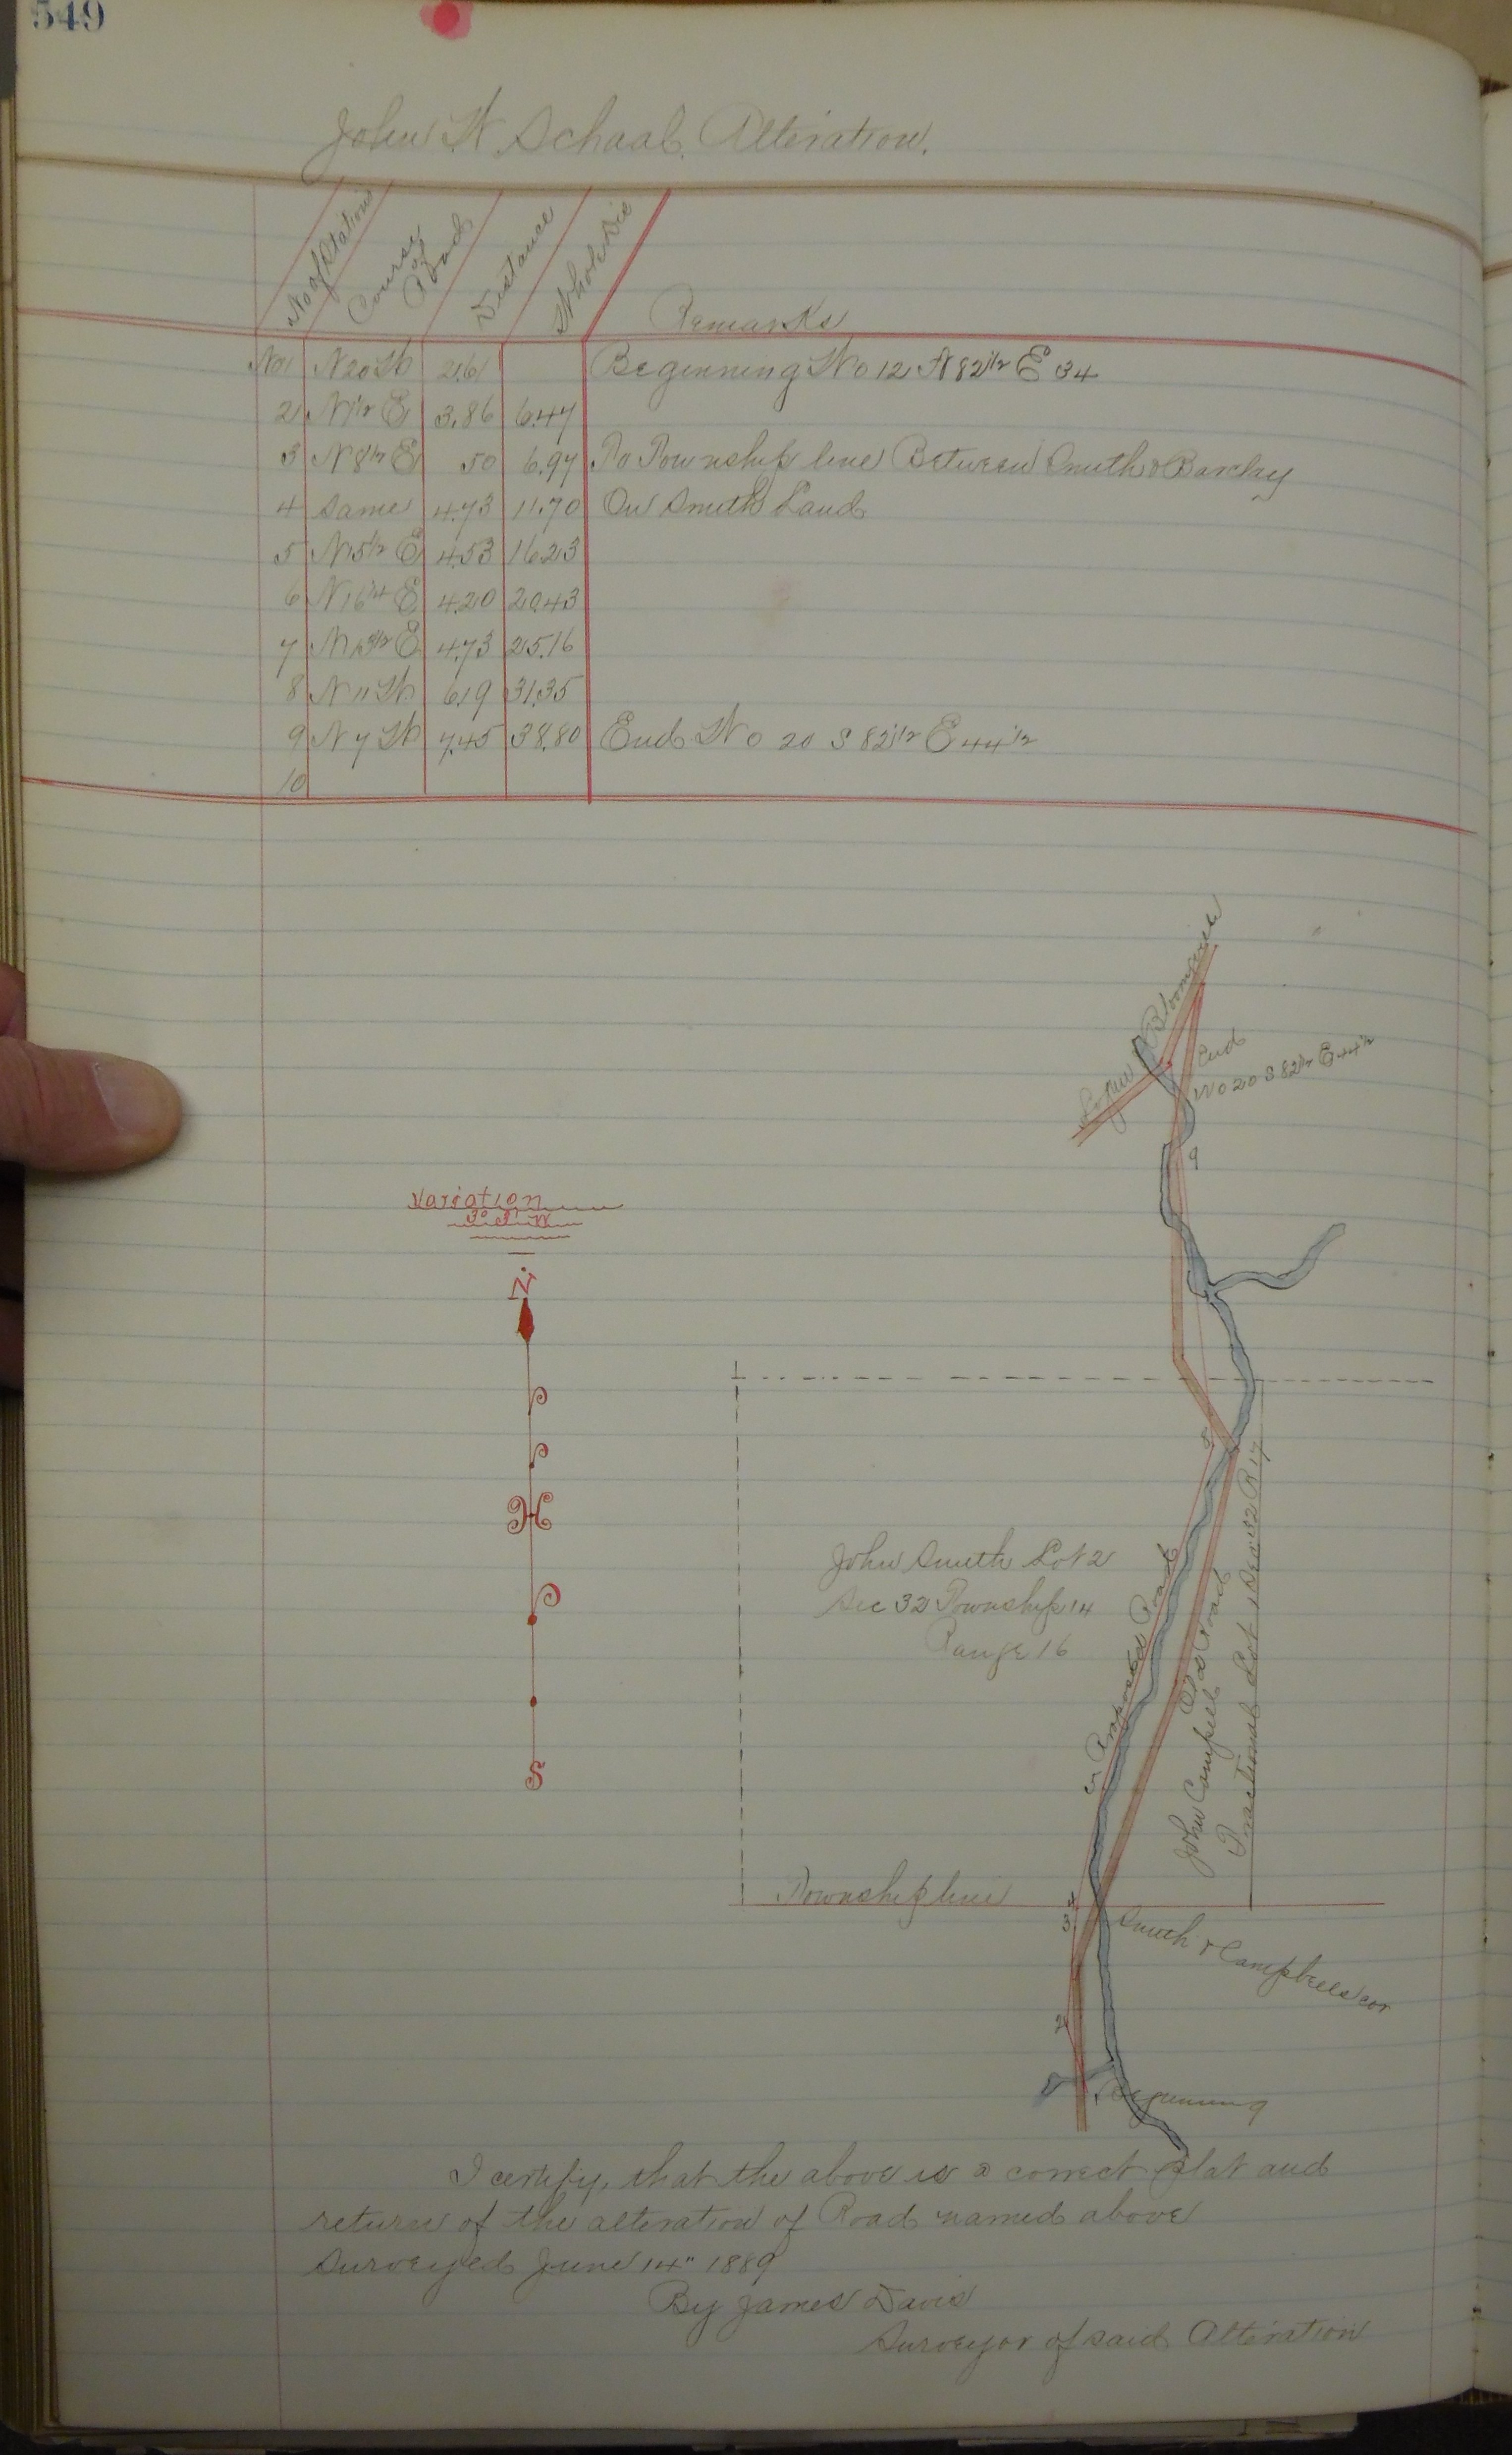 549
John W. Schaal. Alteration.
No of Stations Course of Road Distance Whole Dis Remarks
No 1 N 20 W 2.61 Beginning W 0 12 N 82 1/2 E 34
2 N 1 1/2 E 3.86 6.47
3 N 8 1/2 E 50 6.97 To Township line Between Smith & Barclay
4 Same 4.73 11.70 On Smith Land
5 N 15 1/2 E 4.53 16.23
6 N 16 1/4 E 4.20 20.43
7 N 13 1/2 E 4.73 25.16
8 N 11 W 6.19 31.35
9 N 7 W 7.45 38.80 End W 0 20 S 82 1/2 E 44 1/2
10
End
W 0 20 S 82 1/2 E 44 1/2
9
Variation
N
8
John Smith Lot 2
Sec 32 Township 14
Range 16
Proposed Road
Old Road
John Campbell
Fractional Lot 1 Sec 32 R 17
Township line
4
3
Smith & Campbells cor
2
Beginning
S
I certify, that the above is a correct plat and
return of the alteration of Road named above
Surveyed June 14" 1889
By James Davis
Surveyor of said Alteration